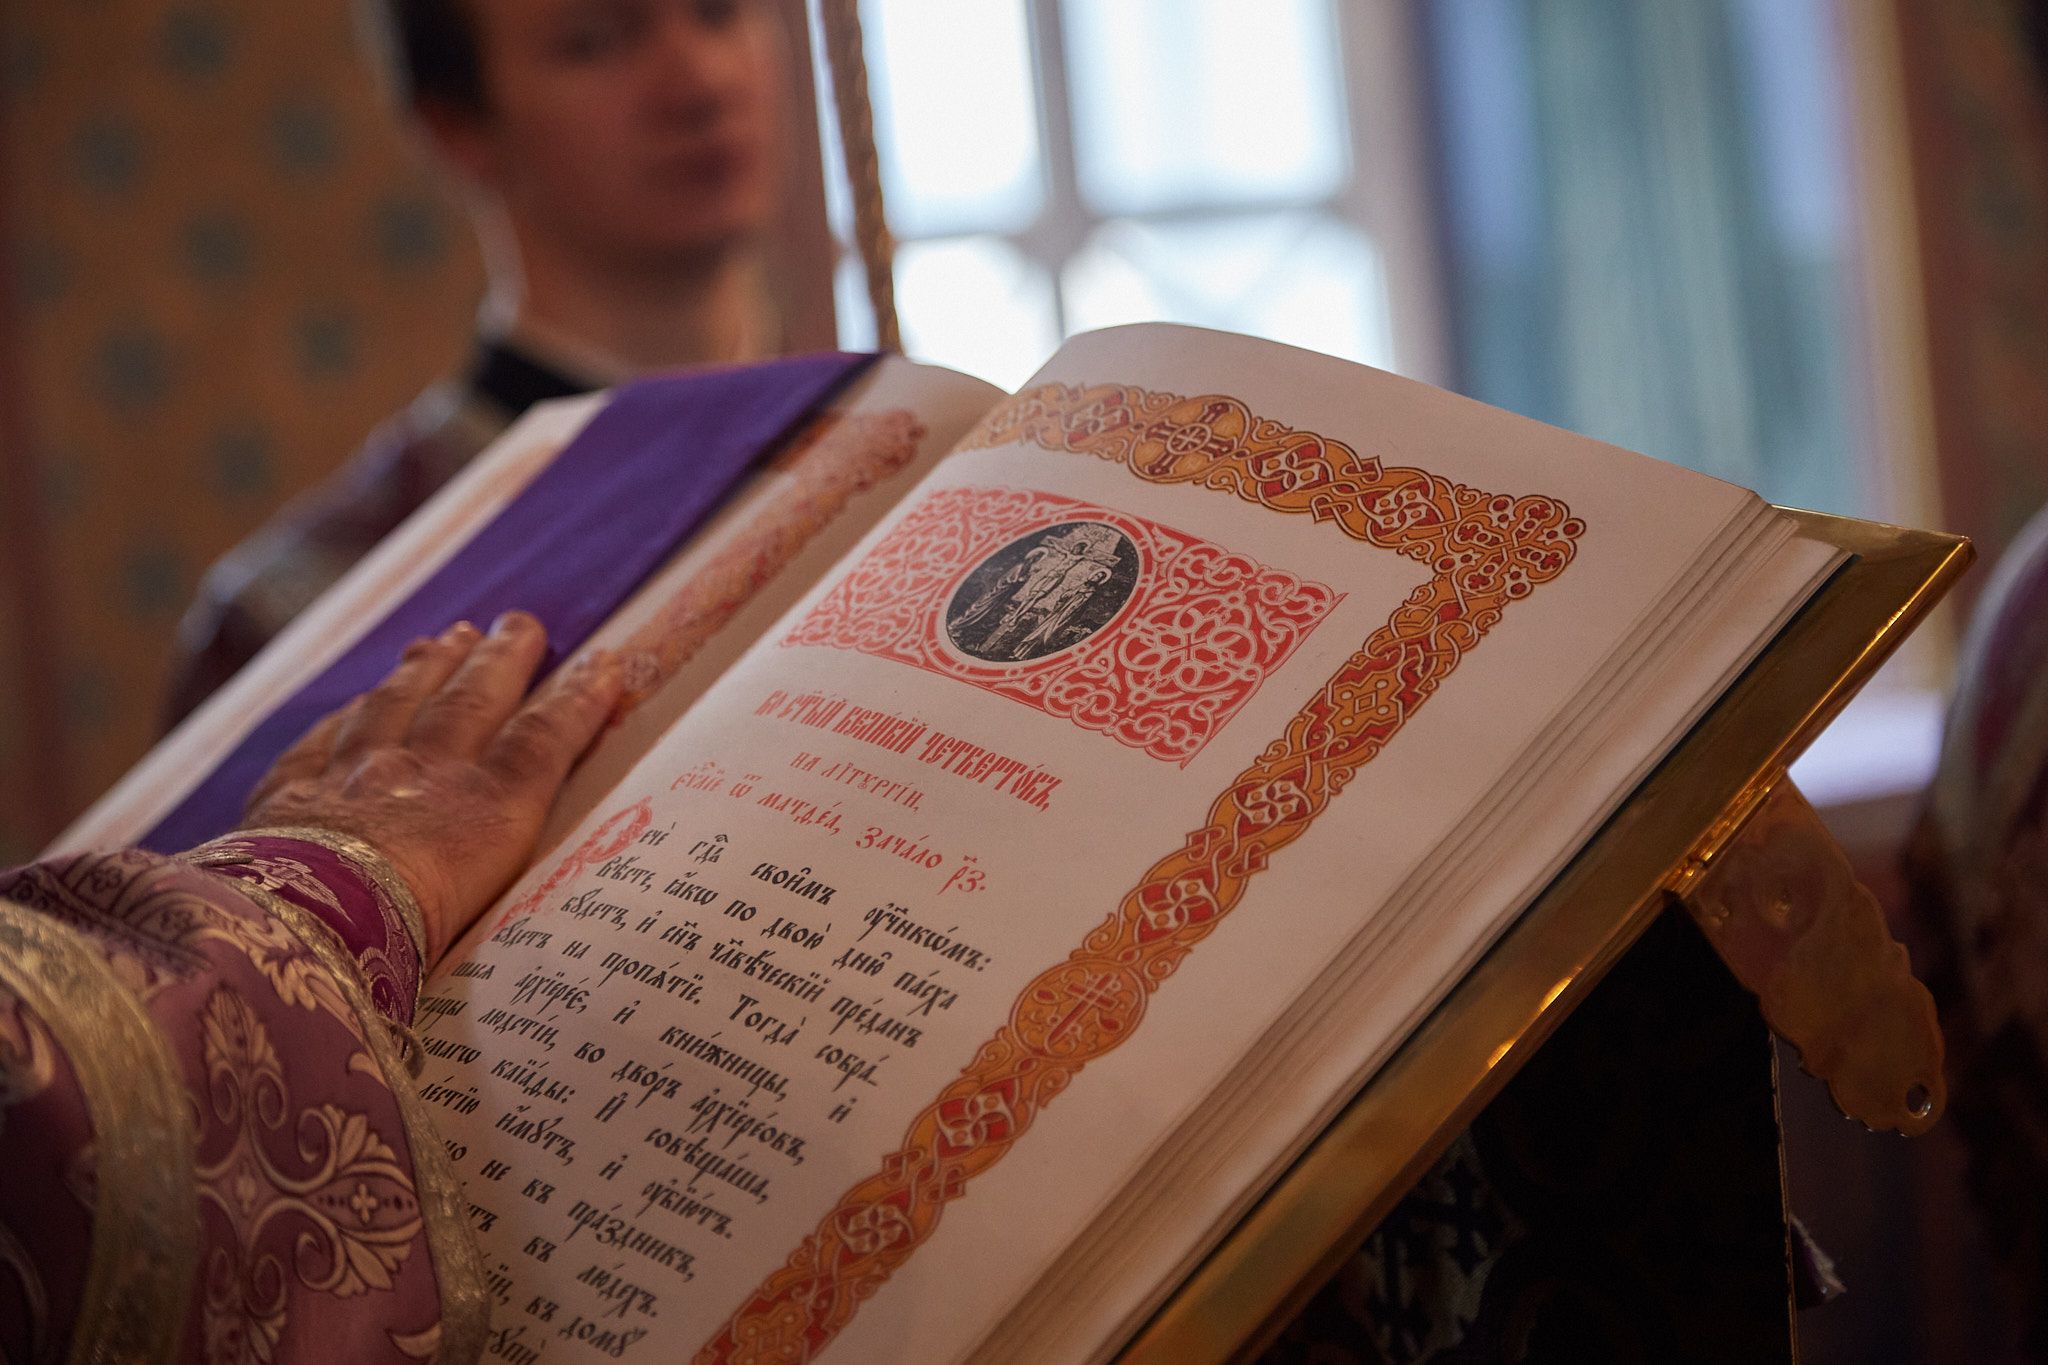 Во ст҃ы́й вели́кїй четверто́къ,
на лїтꙋргі́и,
є҆ѵⷢ҇лїе ѿ матѳе́а, зача́ло р҃з.
Речѐ гдⷭ҇ь свои̑мъ ᲂу҆чн҃кѡ́мъ:
вѣ́сте, ꙗ҆́кѡ по двою̀ дню̑ па́сха
бꙋ́детъ, и҆ сн҃ъ чл҃вѣ́ческїй пре́данъ
бꙋ́детъ на пропѧ́тїе. Тогда̀ собра́-
шасѧ а҆рхїере́є, и҆ кни́жницы, и҆
ста́рцы людсті́и, во дво́ръ а҆рхїере́овъ,
каїа́фы: И҆ совѣща́ша,
ле́стїю и҆́мꙋтъ, и҆ ᲂу҆бїю́тъ.
не въ пра́здникъ,
въ лю́дехъ.
въ домꙋ̀